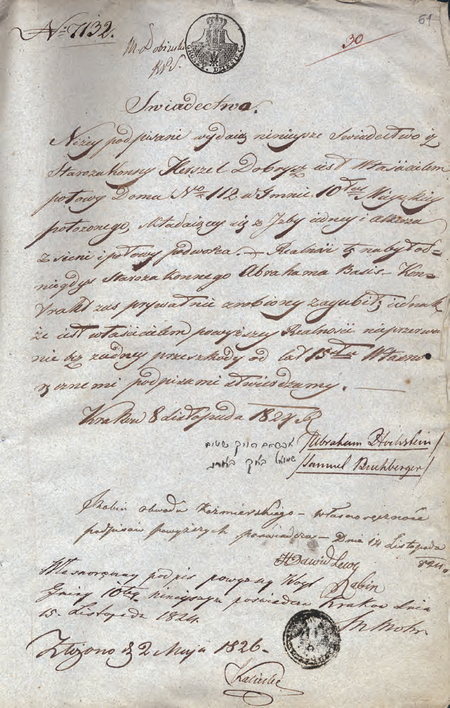 N° 7132.
30
61
Swiadectwo.
Niżey podpisani wydaią ninieysze Swiadectwo iż
Starozakonny Herszel Dobrysz iest Właścicielem
połowy Domu Nro 112 w Gminie 10tey Mieyskiey
położonego, składaiącey się z Izby iedney i alkierza
z sieni i połowy podworka. — Realność tę nabył od
niegdyś Starozakonnego Abrahama Basis. Kon-
trakt zaś prywatnie zrobiony zagubił, iednak
że iest właścicielem powyższey Realności nieprzerwa
nie bez żadney przeszkody od lat 15tu Własno
ręcznemi podpisami stwierdzamy. —
Krakow 8 Listopada 1824
Abraham Hochstein
Samuel Buchberger
Rabin obwodu Kazmierskiego — własnoręczność
podpisow powyższych poswiadcza — Dnia 14 Listopada
1824.
Dawid Lewy
Rabin
Własnoręczny podpis powyższy Woyt
Gminy 10tey poświadcza Krakow Dnia
15. Listopada 1824.
Mohr
Złożono d. 2 Maja 1826.